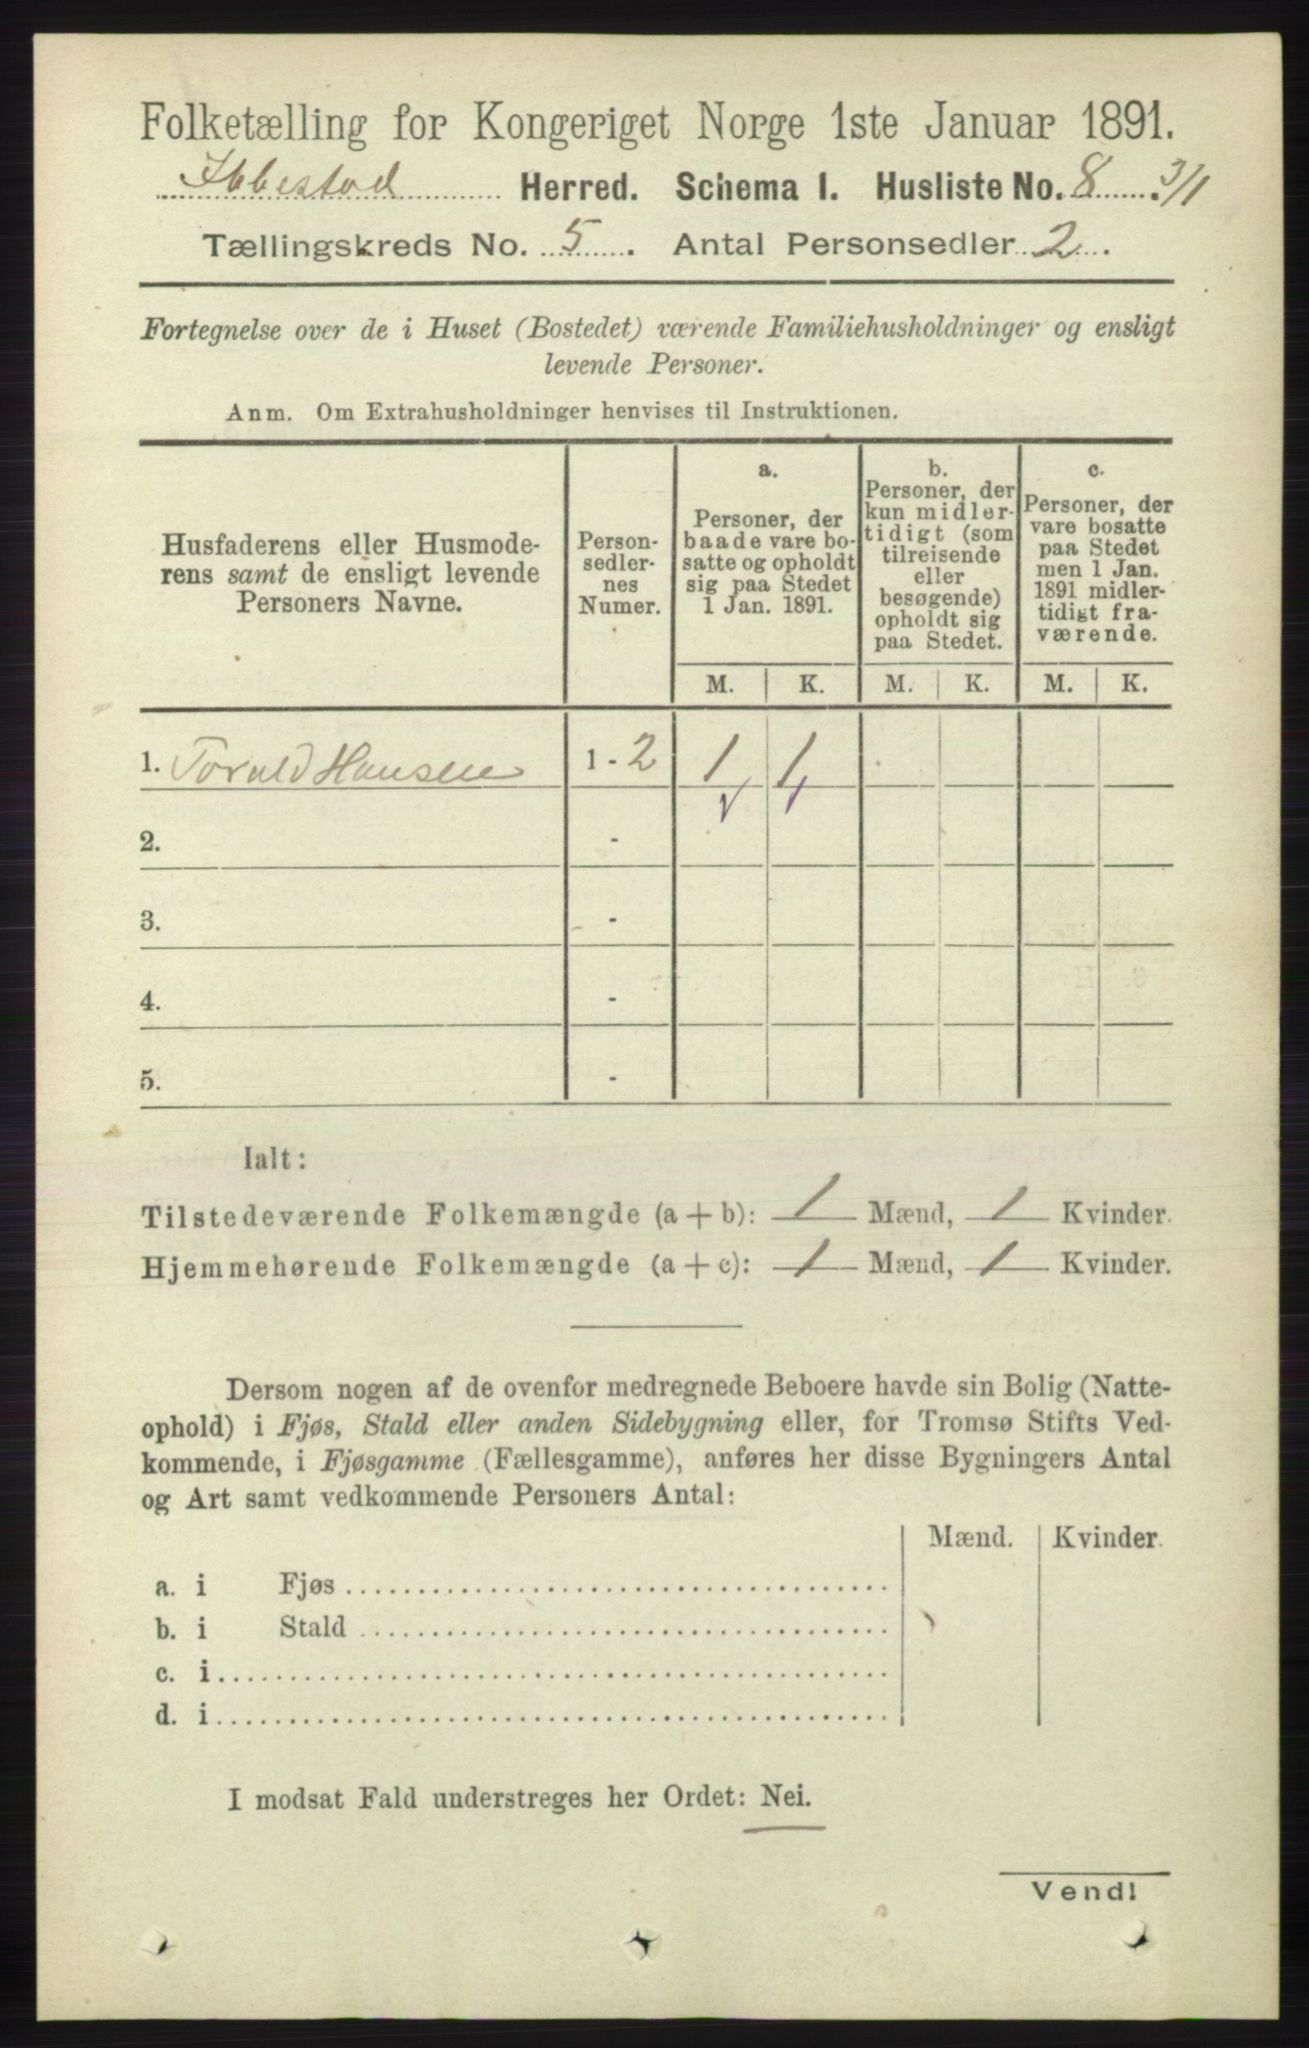 Folketælling for Kongeriget Norge 1ste Januar 1891.
Ibbestad Herred. Schema I. Husliste No. 8 3/1
Tællingskreds No. 5. Antal Personsedler 2.
Fortegnelse over de i Huset (Bostedet) værende Familiehusholdninger og ensligt
levende Personer.
Anm. Om Extrahusholdninger henvises til Instruktionen.
Husfaderens eller Husmode-
rens samt de ensligt levende
Personers Navne.
Person-
sedler-
nes
Numer.
a.
Personer, der
baade vare bo-
satte og opholdt
sig paa Stedet
1 Jan. 1891.
b.
Personer, der
kun midler-
tidigt (som
tilreisende
eller
besøgende)
opholdt sig
paa Stedet.
c.
Personer, der
vare bosatte
paa Stedet
men 1 Jan.
1891 midler-
tidigt fra-
værende.
M. K. M. K. M. K.
1. Torald Hansen 1 - 2 1 1
2. -
3. -
4. -
5. -
Ialt:
Tilstedeværende Folkemængde (a + b): 1 Mænd, 1 Kvinder.
Hjemmehørende Folkemængde (a + c): 1 Mænd, 1 Kvinder.
Dersom nogen af de ovenfor medregnede Beboere havde sin Bolig (Natte-
ophold) i Fjøs, Stald eller anden Sidebygning eller, for Tromsø Stifts Ved-
kommende, i Fjøsgamme (Fællesgamme), anføres her disse Bygningers Antal
og Art samt vedkommende Personers Antal:
Mænd. Kvinder.
a. i Fjøs
b. i Stald
c. i
d. i
I modsat Fald understreges her Ordet: Nei.
Vend!